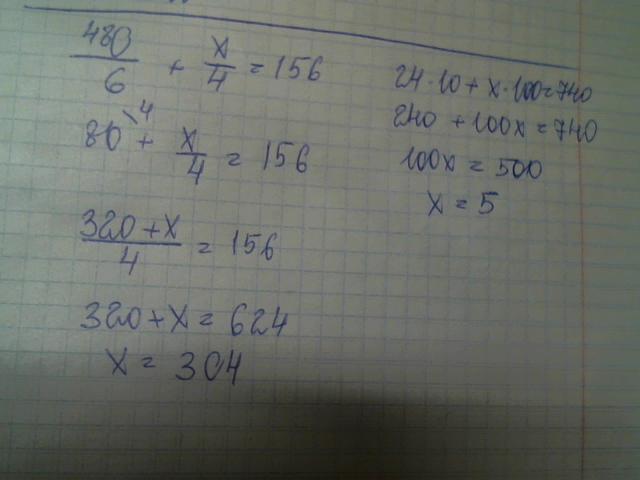 480/6 + x/4 = 156
80\4 + x/4 = 156
320+x/4 = 156
320+x = 624
x = 304
24·10+x·100=740
240+100x=740
100x=500
x=5